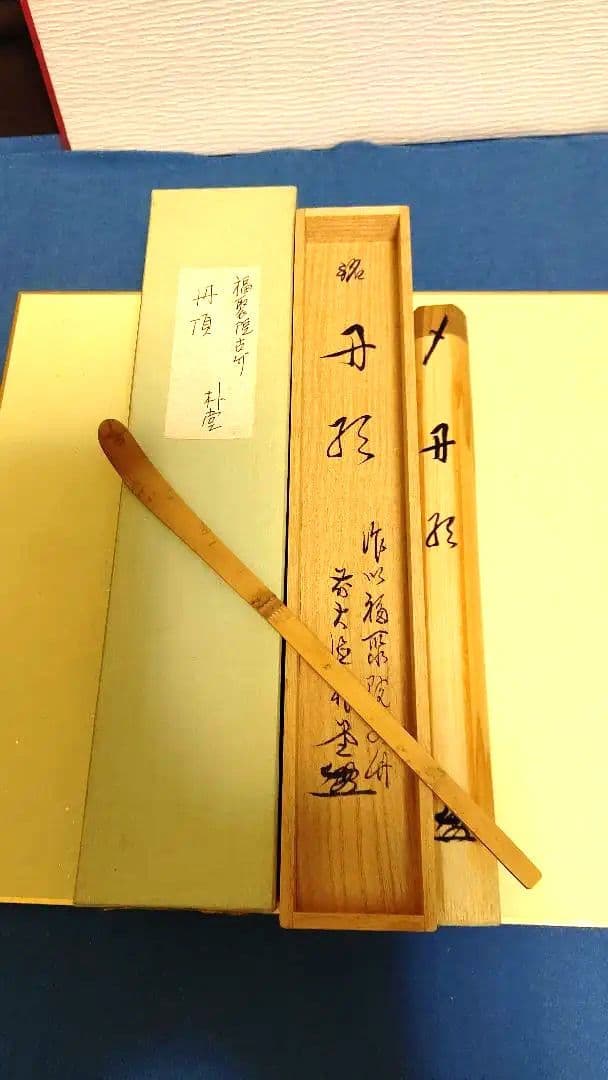 福聚院古竹
丹頂
朴堂
銘
丹頂
作以福聚院古竹
前大徳朴堂
〆
丹頂